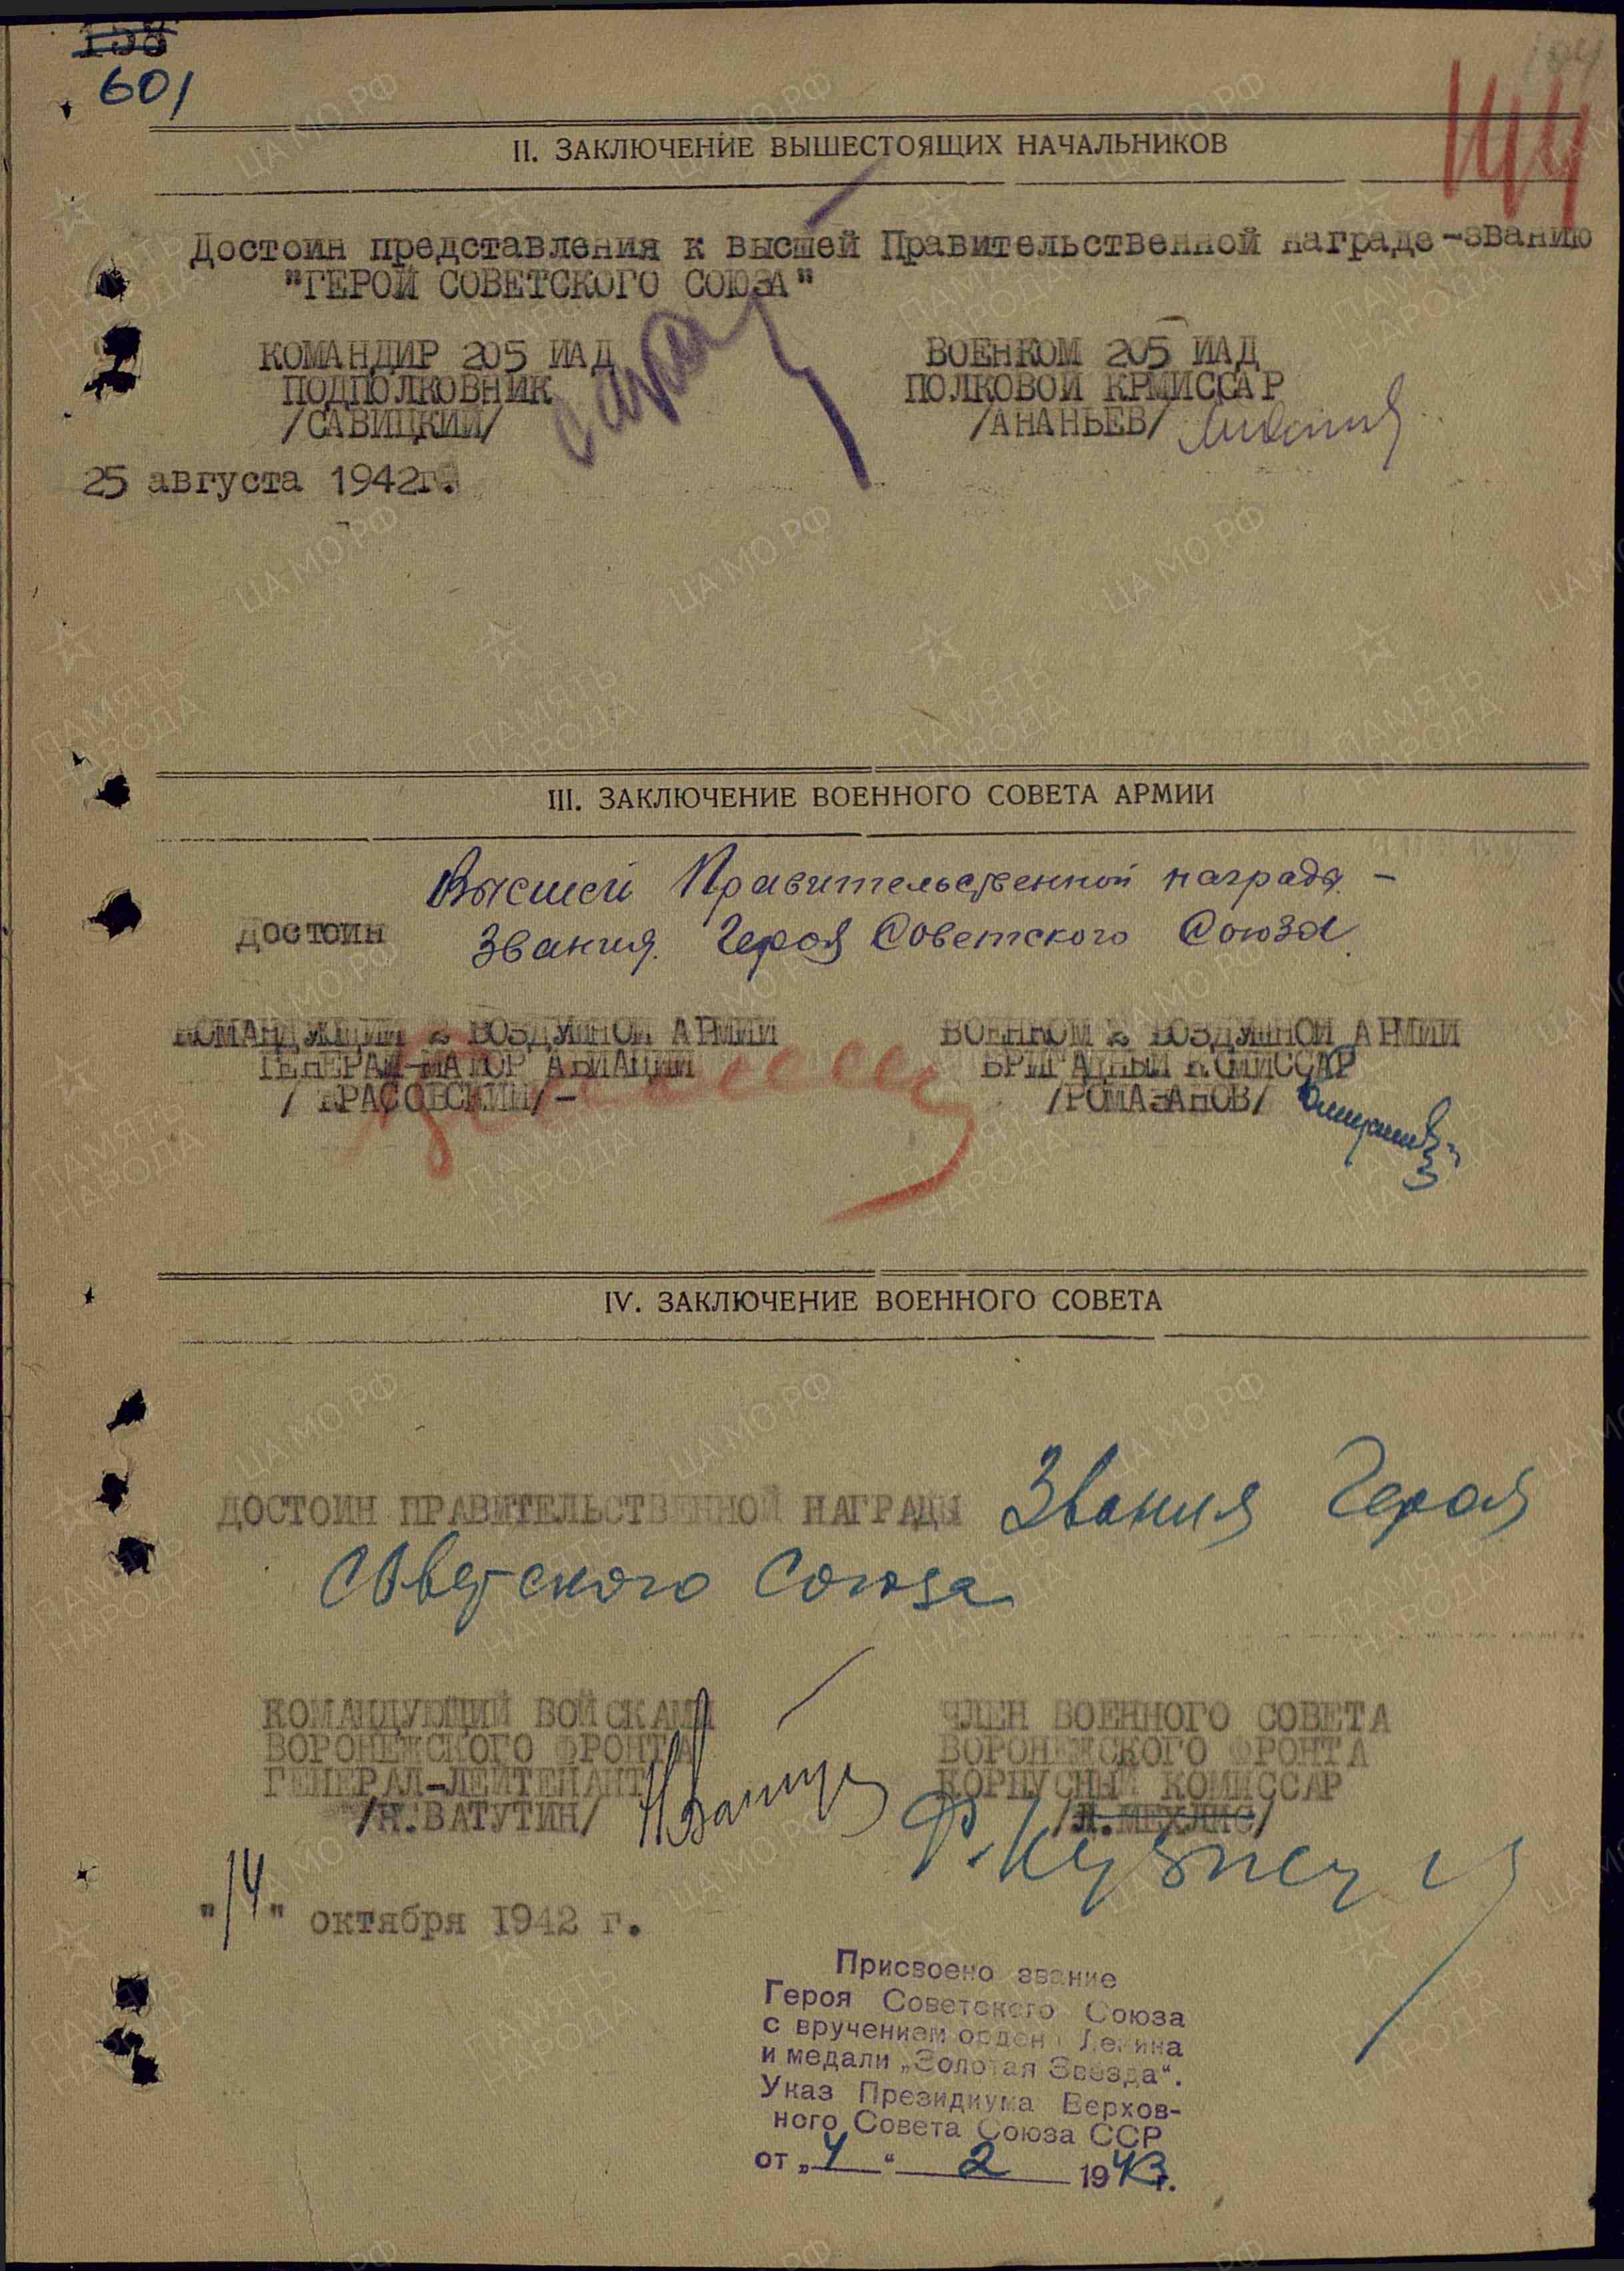 158
601
144
II. ЗАКЛЮЧЕНИЕ ВЫШЕСТОЯЩИХ НАЧАЛЬНИКОВ
Достоин представления к высшей Правительственной награде-званию
"ГЕРОЙ СОВЕТСКОГО СОЮЗА"
КОМАНДИР 205 ИАД
ПОДПОЛКОВНИК
/САВИЦКИЙ/
ВОЕНКОМ 205 ИАД
ПОЛКОВОЙ КРМИССАР
/АНАНЬЕВ/
25 августа 1942г.
III. ЗАКЛЮЧЕНИЕ ВОЕННОГО СОВЕТА АРМИИ
Высшей Правительственной награды -
Достоин звания Героя Советского Союза.
КОМАНДУЮЩИЙ 2 ВОЗДУШНОЙ АРМИИ
ГЕНЕРАЛ-МАЙОР АВИАЦИИ
/ КРАСОВСКИЙ/-
ВОЕНКОМ 2 ВОЗДУШНОЙ АРМИИ
БРИГАДНЫЙ КОМИССАР
/РОМАЗАНОВ/
IV. ЗАКЛЮЧЕНИЕ ВОЕННОГО СОВЕТА
ДОСТОИН ПРАВИТЕЛЬСТВЕННОЙ НАГРАДЫ Звания Героя
Советского Союза
КОМАНДУЮЩИЙ ВОЙСКАМИ
ВОРОНЕЖСКОГО ФРОНТА
ГЕНЕРАЛ-ЛЕЙТЕНАНТ
/Н.ВАТУТИН/
ЧЛЕН ВОЕННОГО СОВЕТА
ВОРОНЕЖСКОГО ФРОНТА
КОРПУСНЫЙ КОМИССАР
/Л.МЕХЛИС/
Ф.Кузнецов
"14" октября 1942 г.
Присвоено звание
Героя Советского Союза
с вручением орден Ленина
и медали „Золотая Звезда".
Указ Президиума Верхов-
ного Совета Союза ССР
от „4" 2 1943г.
ЦАМО РФ
ПАМЯТЬ
НАРОДА